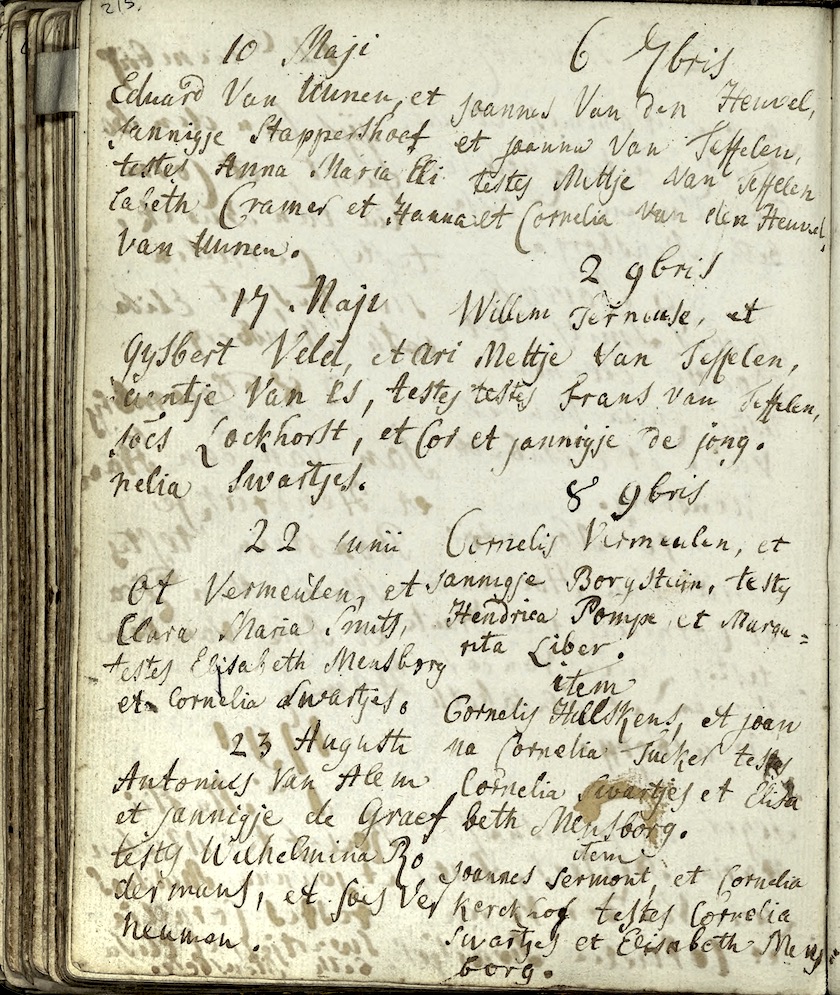 215.
10 Maji
Eduard Van Uunen, et
Jannigje Stappershoef
testes Anna Maria Eli
sabeth Cramer et Hanna
van Uunen.
17 Maji
Gysbert Veld, et Ari
aentje Van Es, testes
Joës Lockhorst, et Cor
nelia Swartjes.
22 Junii
Ot Vermeulen, et
Clara Maria Smits,
testes Elisabeth Mensborg
et Cornelia Swartjes.
23 Augusti
Antonius Van Alem
et Jannigje de Graef
testes Wilhelmina Ro
dermans, et Joes Ver
neumen.
6 7bris
Joannes Van den Heuvel,
et Joanna Van Teffelen,
testes Mettje Van Teffelen
et Cornelia Van den Heuvel,
2 9bris
Willem Terneuse, et
Mettje Van Teffelen,
testes Frans van Teffelen,
et Jannigje de Jong.
8 9bris
Cornelis Vermeulen, et
Jannigje Borgstein, testes
Hendrica Pompe, et Marga=
rita Liber.
item
Cornelis Hellskens, et Joan
na Cornelia Tucker testes
Cornelia Swartjes et Elisa
beth Mensborg.
item
Joannes Sermont, et Cornelia
Kerckhof testes Cornelia
Swartjes et Elisabeth Mens
borg.